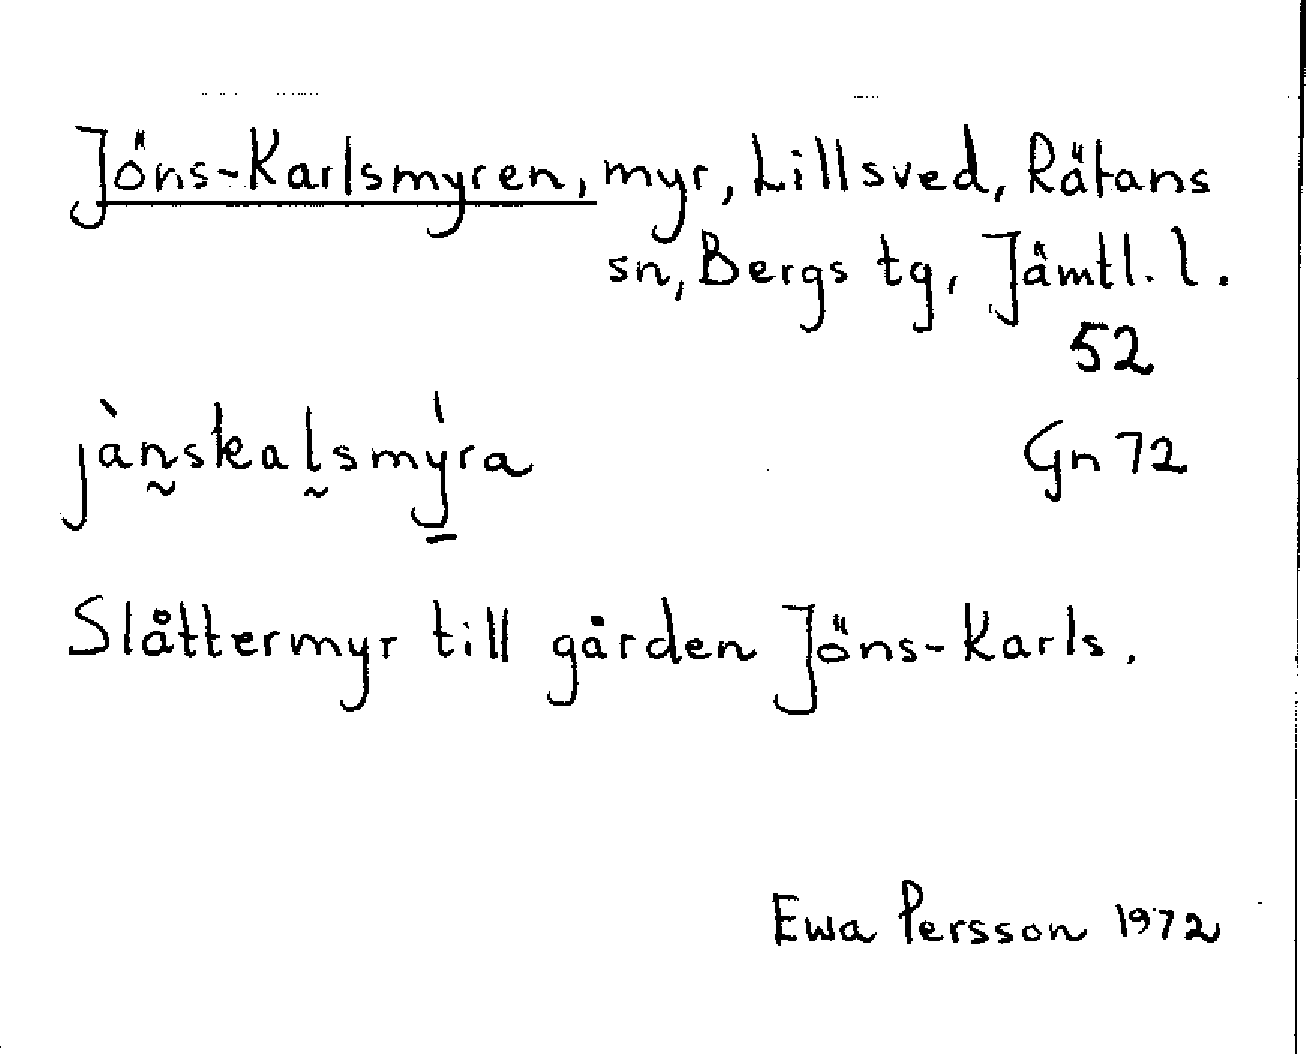 Jöns-Karlsmyren, myr, Lillsved, Rätans
sn, Bergs tg, Jämtl. l.
52
jànskaḷsmýra
Gn 72
Slåttermyr till gården Jöns-Karls.
Ewa Persson 1972